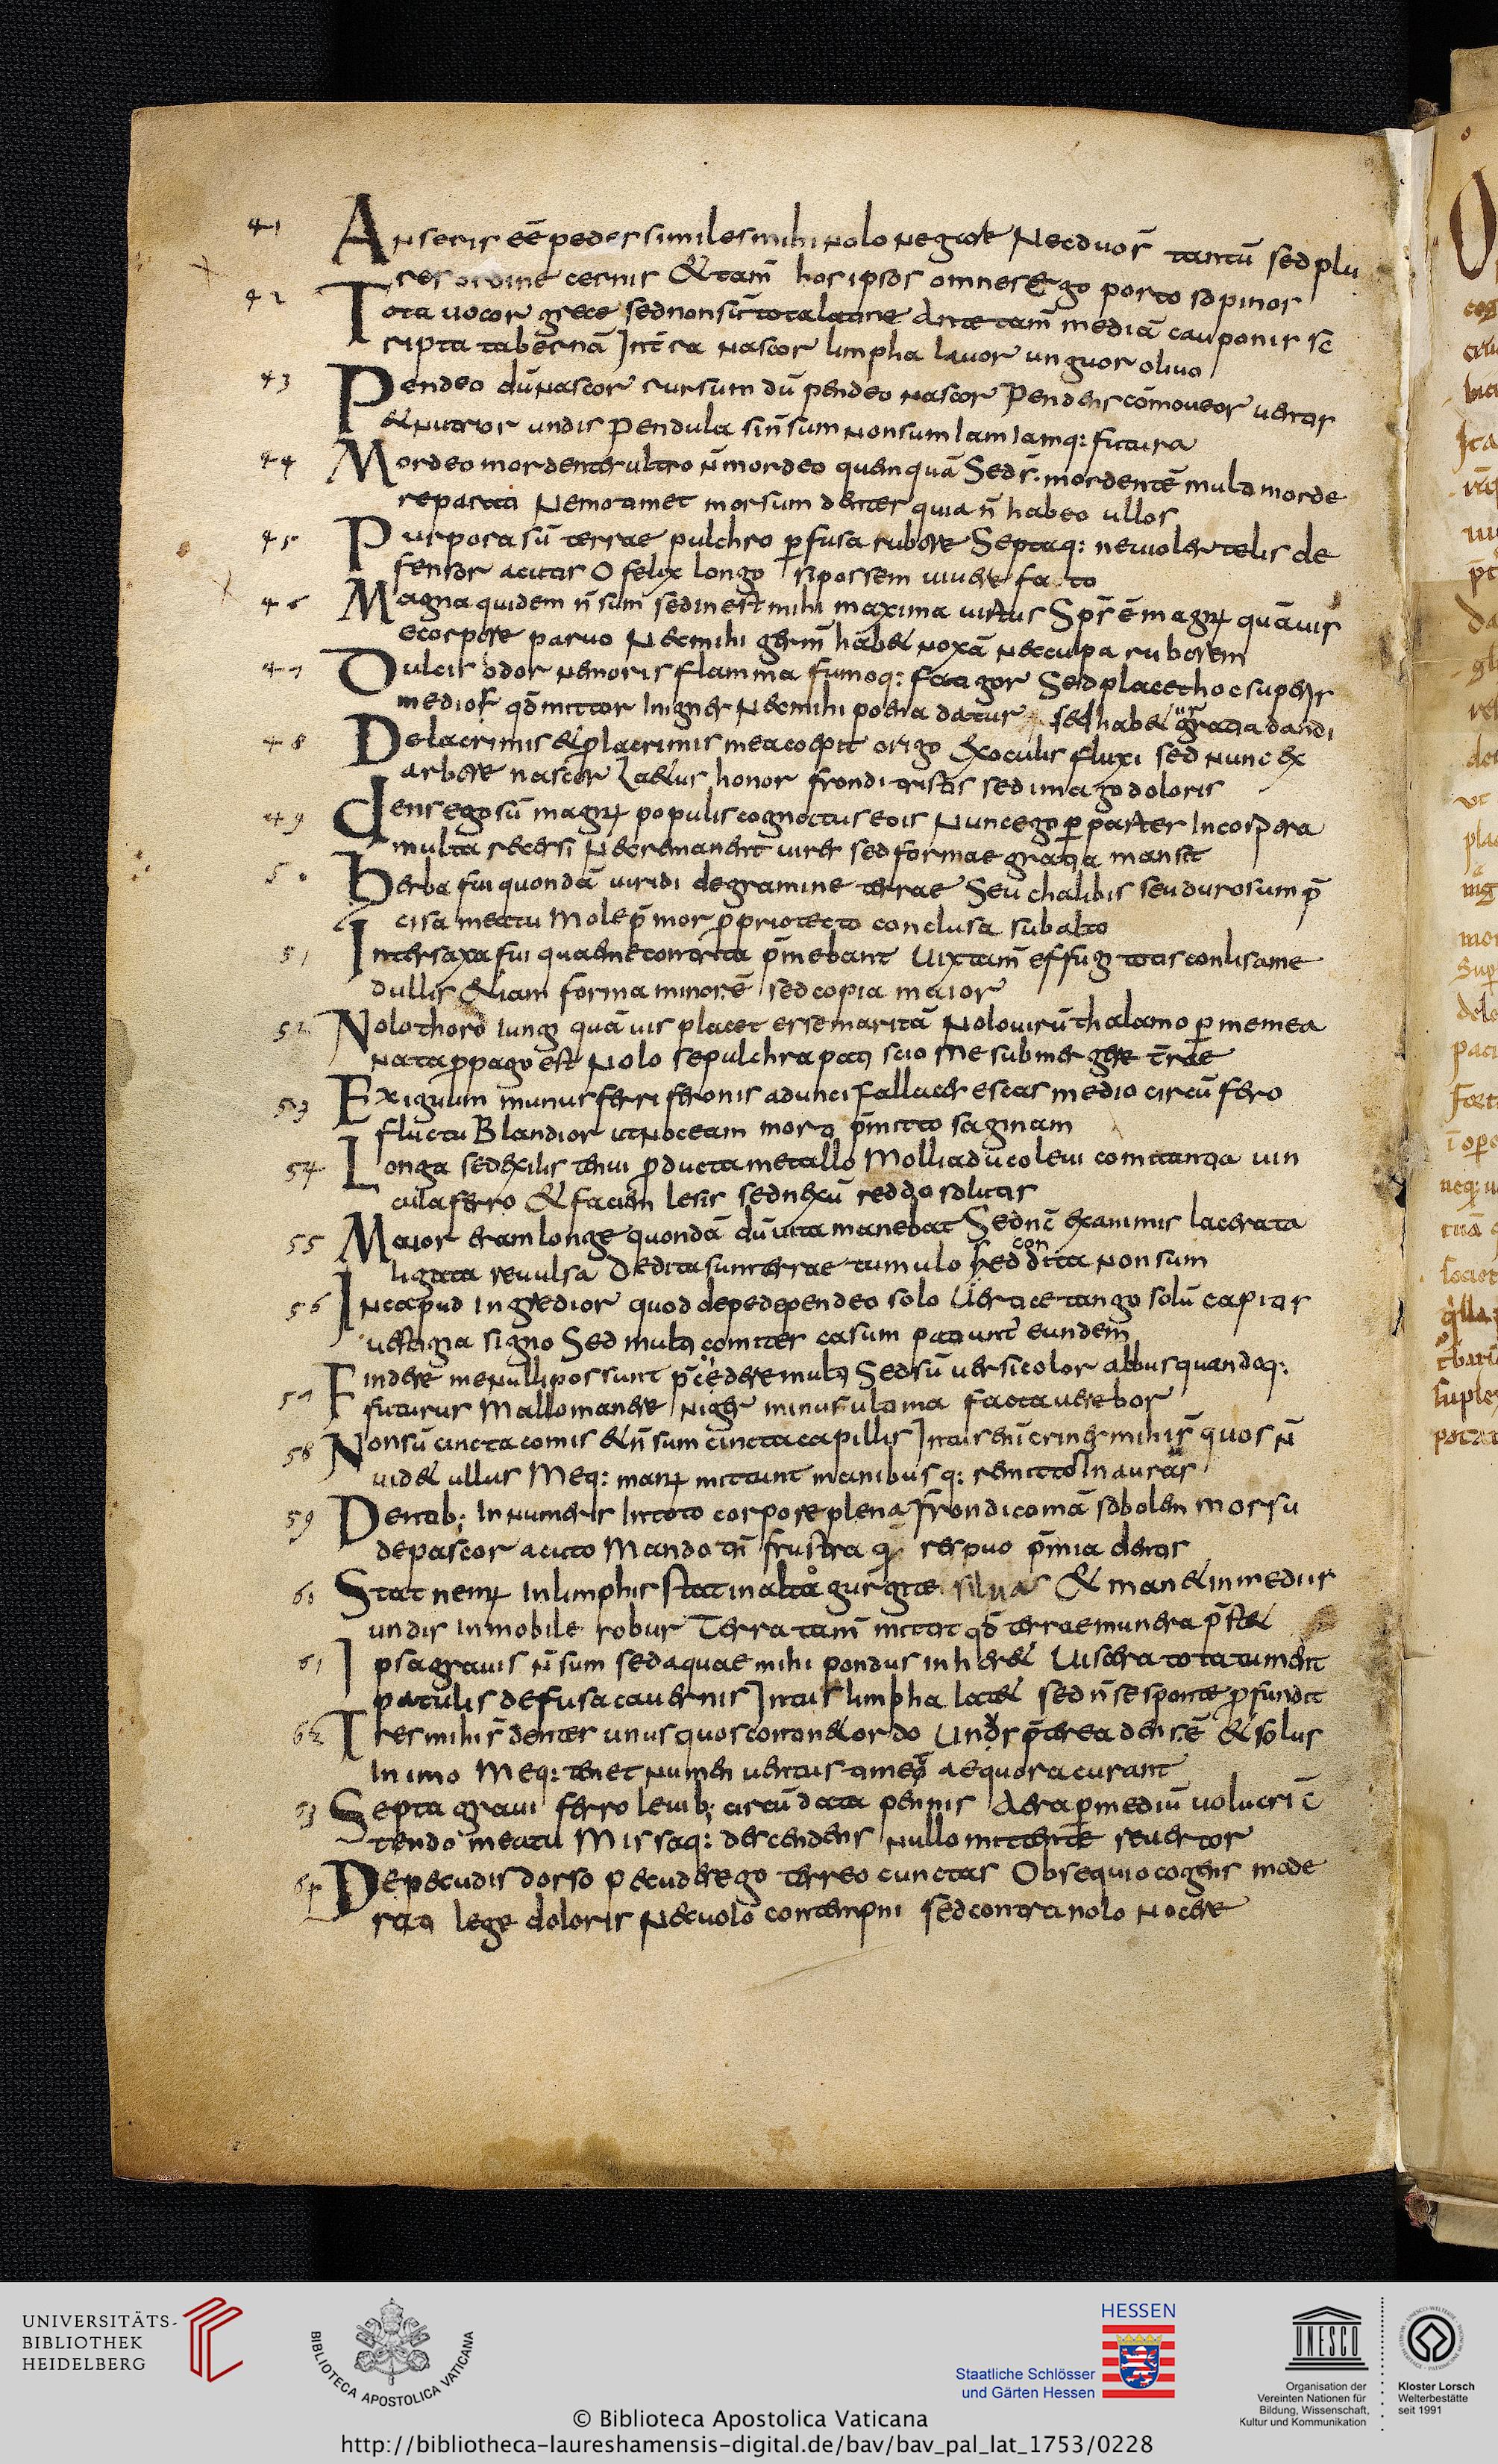 41 Anseris eē pedes similes mihi nolo negare Nec duor̄ tantū sed plu
res ordine cernis & tam̄ hos ipsos omnes Ego porto sopinos
42 Tota uocor grece sed non sū tota latine Ante tam̄ mediā cauponis sc
ripta tabernā Int̄ra nascor limpha lauor unguor oliuo
43 Pendeo dū nascor rursum dū pendeo nascor Pendens cōmoueor uentis
& nutrior undis Pendula si n̄ sum non sum iam iamq: futura
44 Mordeo mordentes ultro n̄ mordeo quenquā Sed s̄. mordentē multa morde
re parati Nemo timet morsum dentes quia n̄ habeo ullos
45 Purpora sū terrae pulchro ꝑfusa rubore Septaq: ne uioler telis de
fensor acutis O felix longo si possem uiuere fato
46 Magna quidem n̄ sum sed inest mihi maxima uirtus Sp̄s ē magnꝰ quāuis
e corpore paruo Nec mihi germ̄ hab& noxā nec culpa ruborem
47 Dulcis odor nemoris flamma fumoq: fatigor Sed placet hoc superis
medios qd̄ mittor In ignes Nec mihi poena datur sed hab& gratia dandi
48 De lacrimis & p̄ lacrimis mea coepit origo Ex oculis fluxi sed nunc ex
arbore nascor Laetus honor frondi tristis sed imago doloris
49 Dens ego sū magnꝰ populis cognotus eois Nunc ego ꝑ partes In corpora
multa recersi Nec remanent uires sed formae gratia mansit
50 Herba fui quondā uiridi de gramine terrae Seu chalibis seu duro sum p̄
cisa metu Mole p̄mor ꝓprio tecto conclusa sub alto
51 Inter saxa fui quae me contrita p̄mebant Uix tam̄ effugi totis conlisa me
dullis & iam forma minor ē sed copia maior
52 Nolo thoro iungi quāuis placet esse maritā Nolo uirū thalamo ꝑ me mea
nata ꝓpago est Nolo sepulchra pati scio me submergere t̄rae
53 Exiguum munus ferri feronis adunci Fallaces escas medio circū fero
fluctu Blandior ut noceam morti p̄mitto saginam
54 Longa sed exilis tenui ꝓducta metallo Mollia duco leui comitantia uin
cula ferro & faciem lesis sed nexū reddo solutis
55 Maior eram longe quondā dū uita manebat Sed nc̄ exanimis lacerata
ligata reuulsa Dedita sum terrae tumulo sed condita non sum
56 In caput ingredior quod de pede pendeo solo Uertice tango solū capitis
uestigia signo Sed multi comites casum patiunt̄ eundem
57 Findere me nulli possunt p̄cedere multi Sed sū uersicolor albus quandoq:
futurus Mallo manere niger minus ultima facta uerebor
58 Non sū cincta comis & n̄ sum cincta capillis Intus eni crines mihi s̄ quos n̄
uid& ullus Meq: manꝰ mittunt manibusq: remittor In auras
59 Dentib; Innumeris In toto corpore plena Frondicomā sobolem morsu
depascor acuto Mando tn̄ frustra q̄ respuo p̄mia dentis
60 Stat nemꝰ In limphis stat in alto gurgite siluas & man& in mediis
undis Inmobile robur Terra tam̄ mittit qd̄ terrae munera p̄st&
61 Ipsa grauis n̄ sum sed aquae mihi pondus inher& Uiscera tota tument
patulis defusa cauernis Intus limpha lat& sed n̄ se sponte ꝓfundit
62 Tres mihi s̄ dentes unus quos contin& ordo Unꝰ p̄terea dens ē & solus
In imo Meq: tenet numen uentus timeo aequora curant
63 Septa graui ferro leuib; circūdata pennis Aera ꝑ mediū uolucri c̄
tendo meatu Missaq: descendens nullo mittente reuertor
64 De pecudis dorso pecudes ego terreo cunctas Obsequio cogens mode
rati lege doloris Nec uolo contempni sed contra nolo nocere
UNIVERSITÄTS-
BIBLIOTHEK
HEIDELBERG
BIBLIOTECA APOSTOLICA VATICANA
HESSEN
Staatliche Schlösser
und Gärten Hessen
UNESCO
Organisation der
Vereinten Nationen für
Bildung, Wissenschaft,
Kultur und Kommunikation
Kloster Lorsch
Welterbestätte
seit 1991
© Biblioteca Apostolica Vaticana
http://bibliotheca-laureshamensis-digital.de/bav/bav_pal_lat_1753/0228